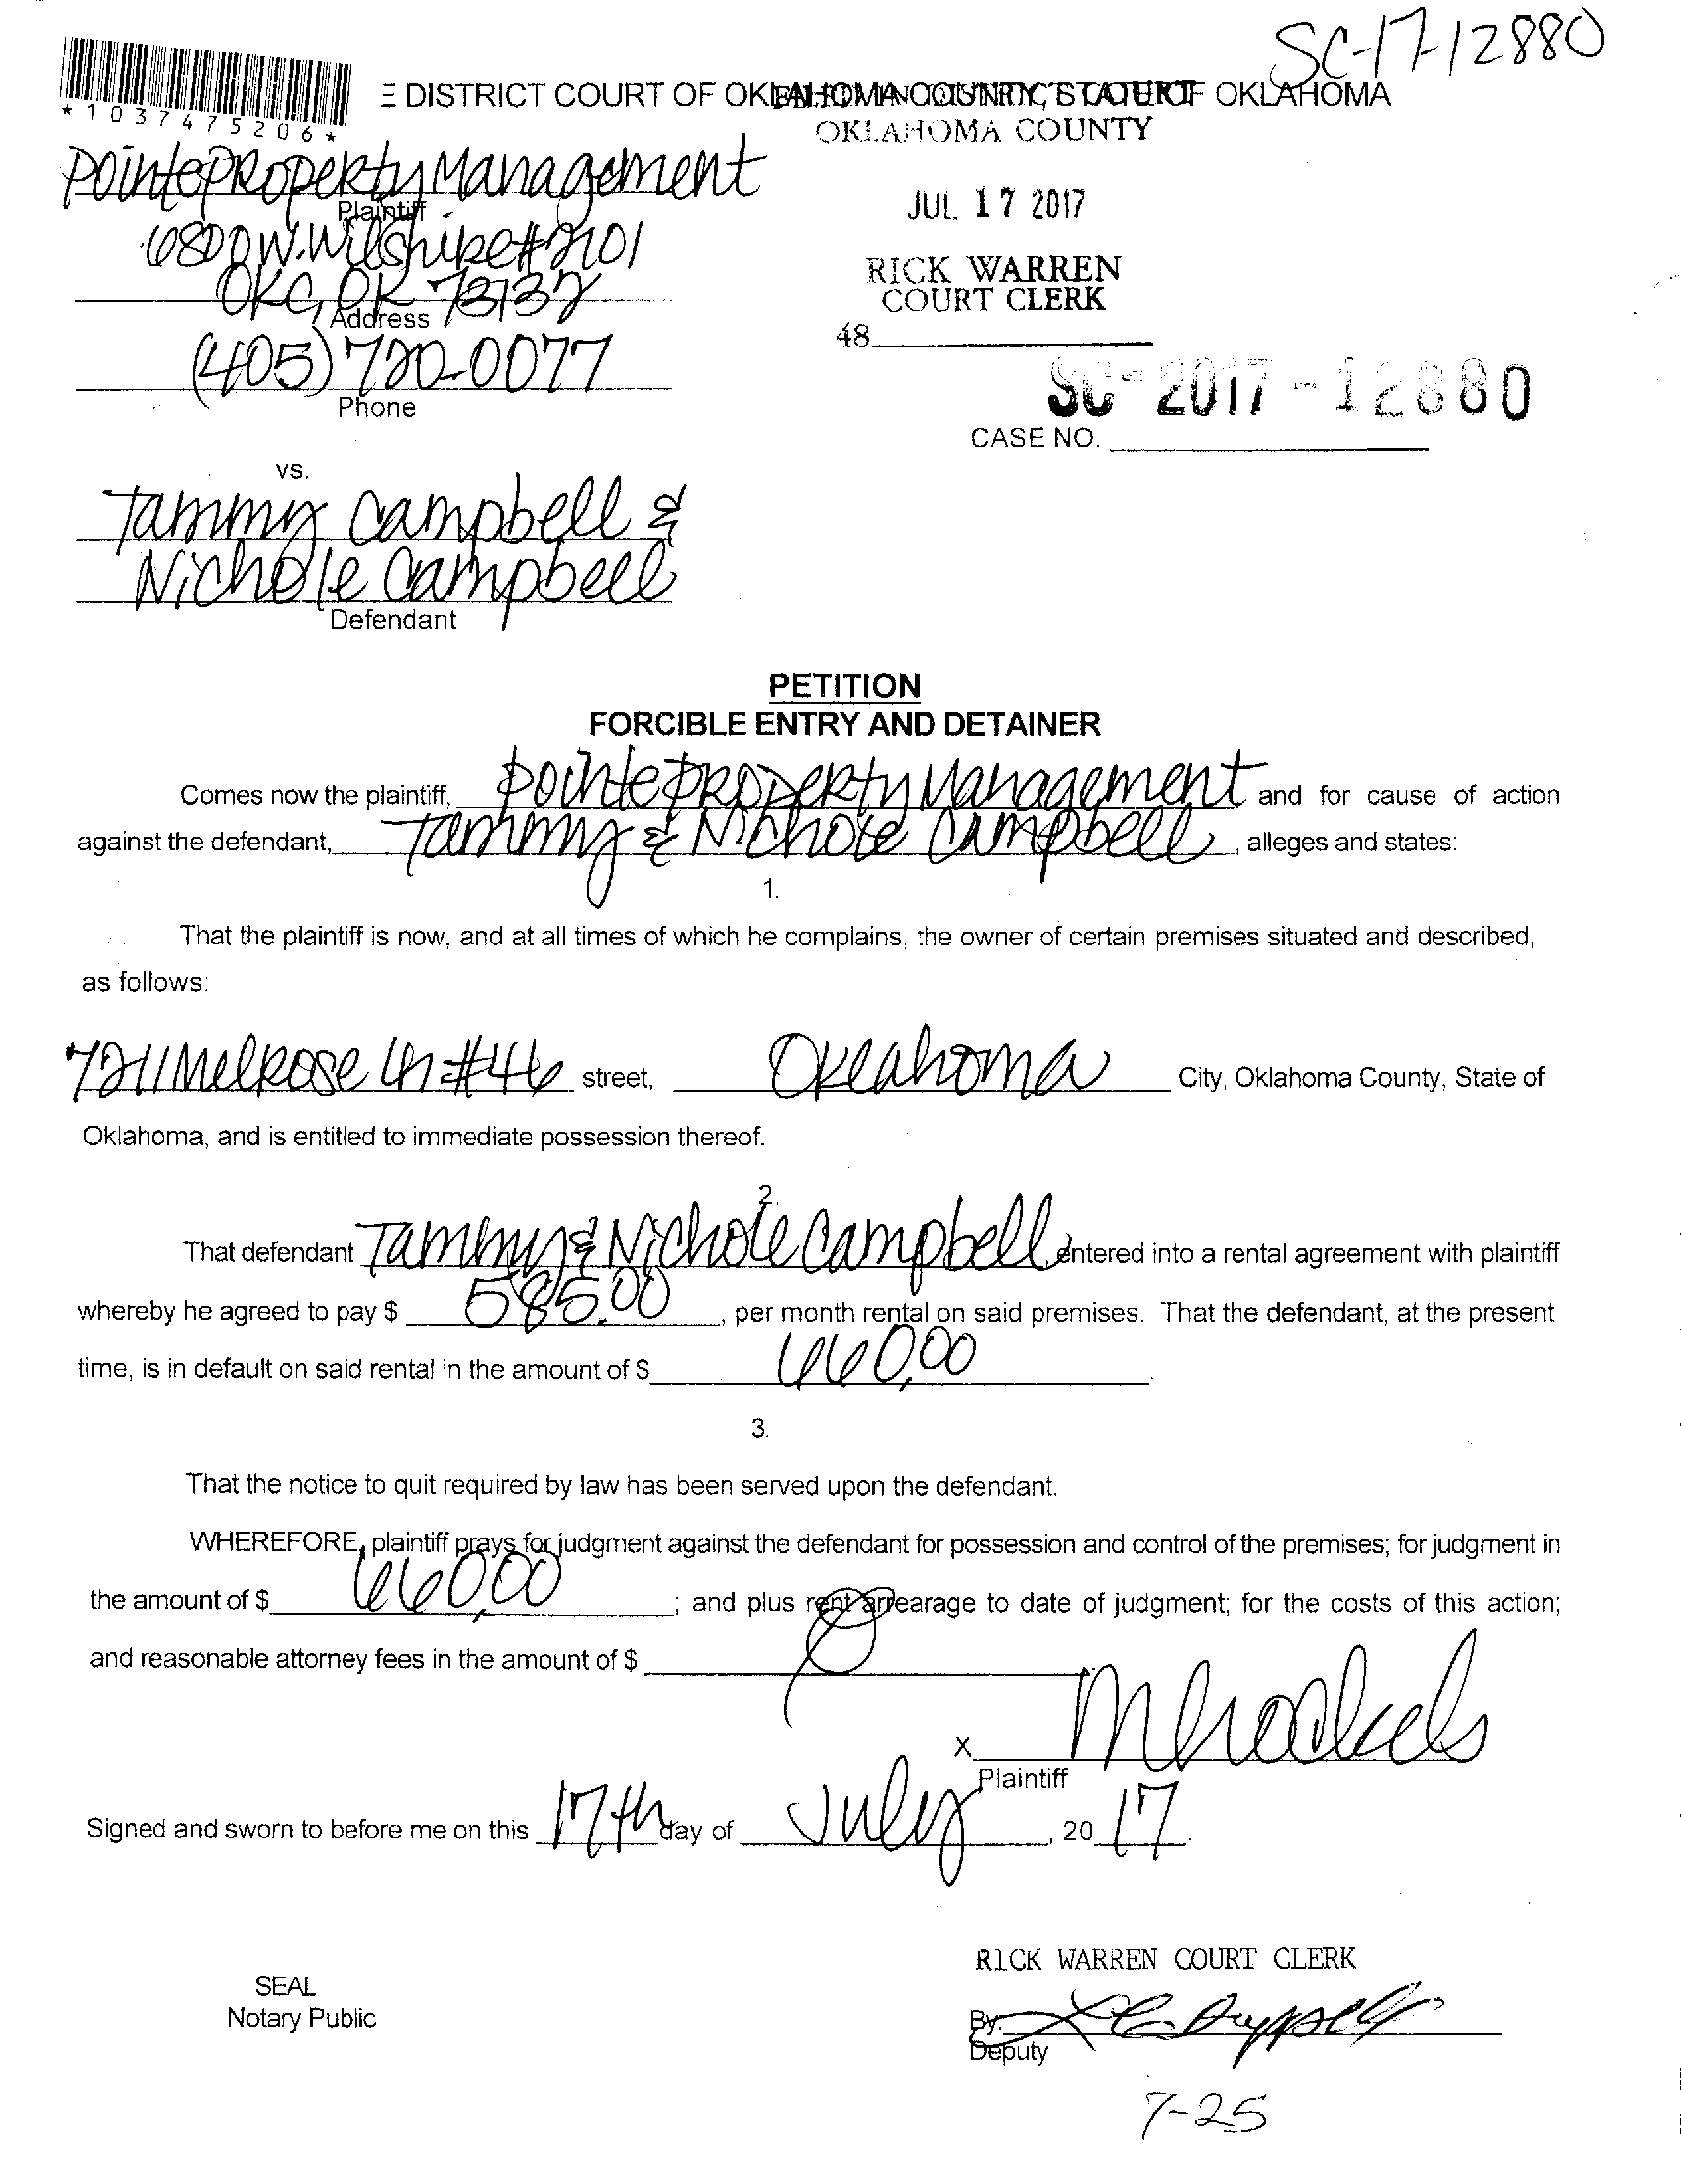 SC-17-12880
*1037475206*
E DISTRICT COURT OF OKLAHOMA COUNTY, STATE OF OKLAHOMA
OKLAHOMA COUNTY
Pointe Property Management
Plaintiff
JUL 17 2017
6800 W. Wilshire #2101
RICK WARREN
COURT CLERK
OKC, OK 73132
Address
48
(405) 720-0077
Phone
SC-2017-12880
CASE NO.
vs.
Tammy Campbell &
Nichole Campbell
Defendant
PETITION
FORCIBLE ENTRY AND DETAINER
Comes now the plaintiff, Pointe Property Management and for cause of action
against the defendant, Tammy & Nichole Campbell, alleges and states:
1.
That the plaintiff is now, and at all times of which he complains, the owner of certain premises situated and described,
as follows:
7211 Melrose Ln #46 street, Oklahoma City, Oklahoma County, State of
Oklahoma, and is entitled to immediate possession thereof.
2.
That defendant Tammy & Nichole Campbell entered into a rental agreement with plaintiff
whereby he agreed to pay $ 585.00, per month rental on said premises. That the defendant, at the present
time, is in default on said rental in the amount of $ 660.00
3.
That the notice to quit required by law has been served upon the defendant.
WHEREFORE, plaintiff prays for judgment against the defendant for possession and control of the premises; for judgment in
the amount of $ 660.00; and plus rent arrearage to date of judgment; for the costs of this action;
and reasonable attorney fees in the amount of $
X
Plaintiff
Signed and sworn to before me on this 17th day of July, 20 17.
RICK WARREN COURT CLERK
SEAL
Notary Public
By:
Deputy
7-25